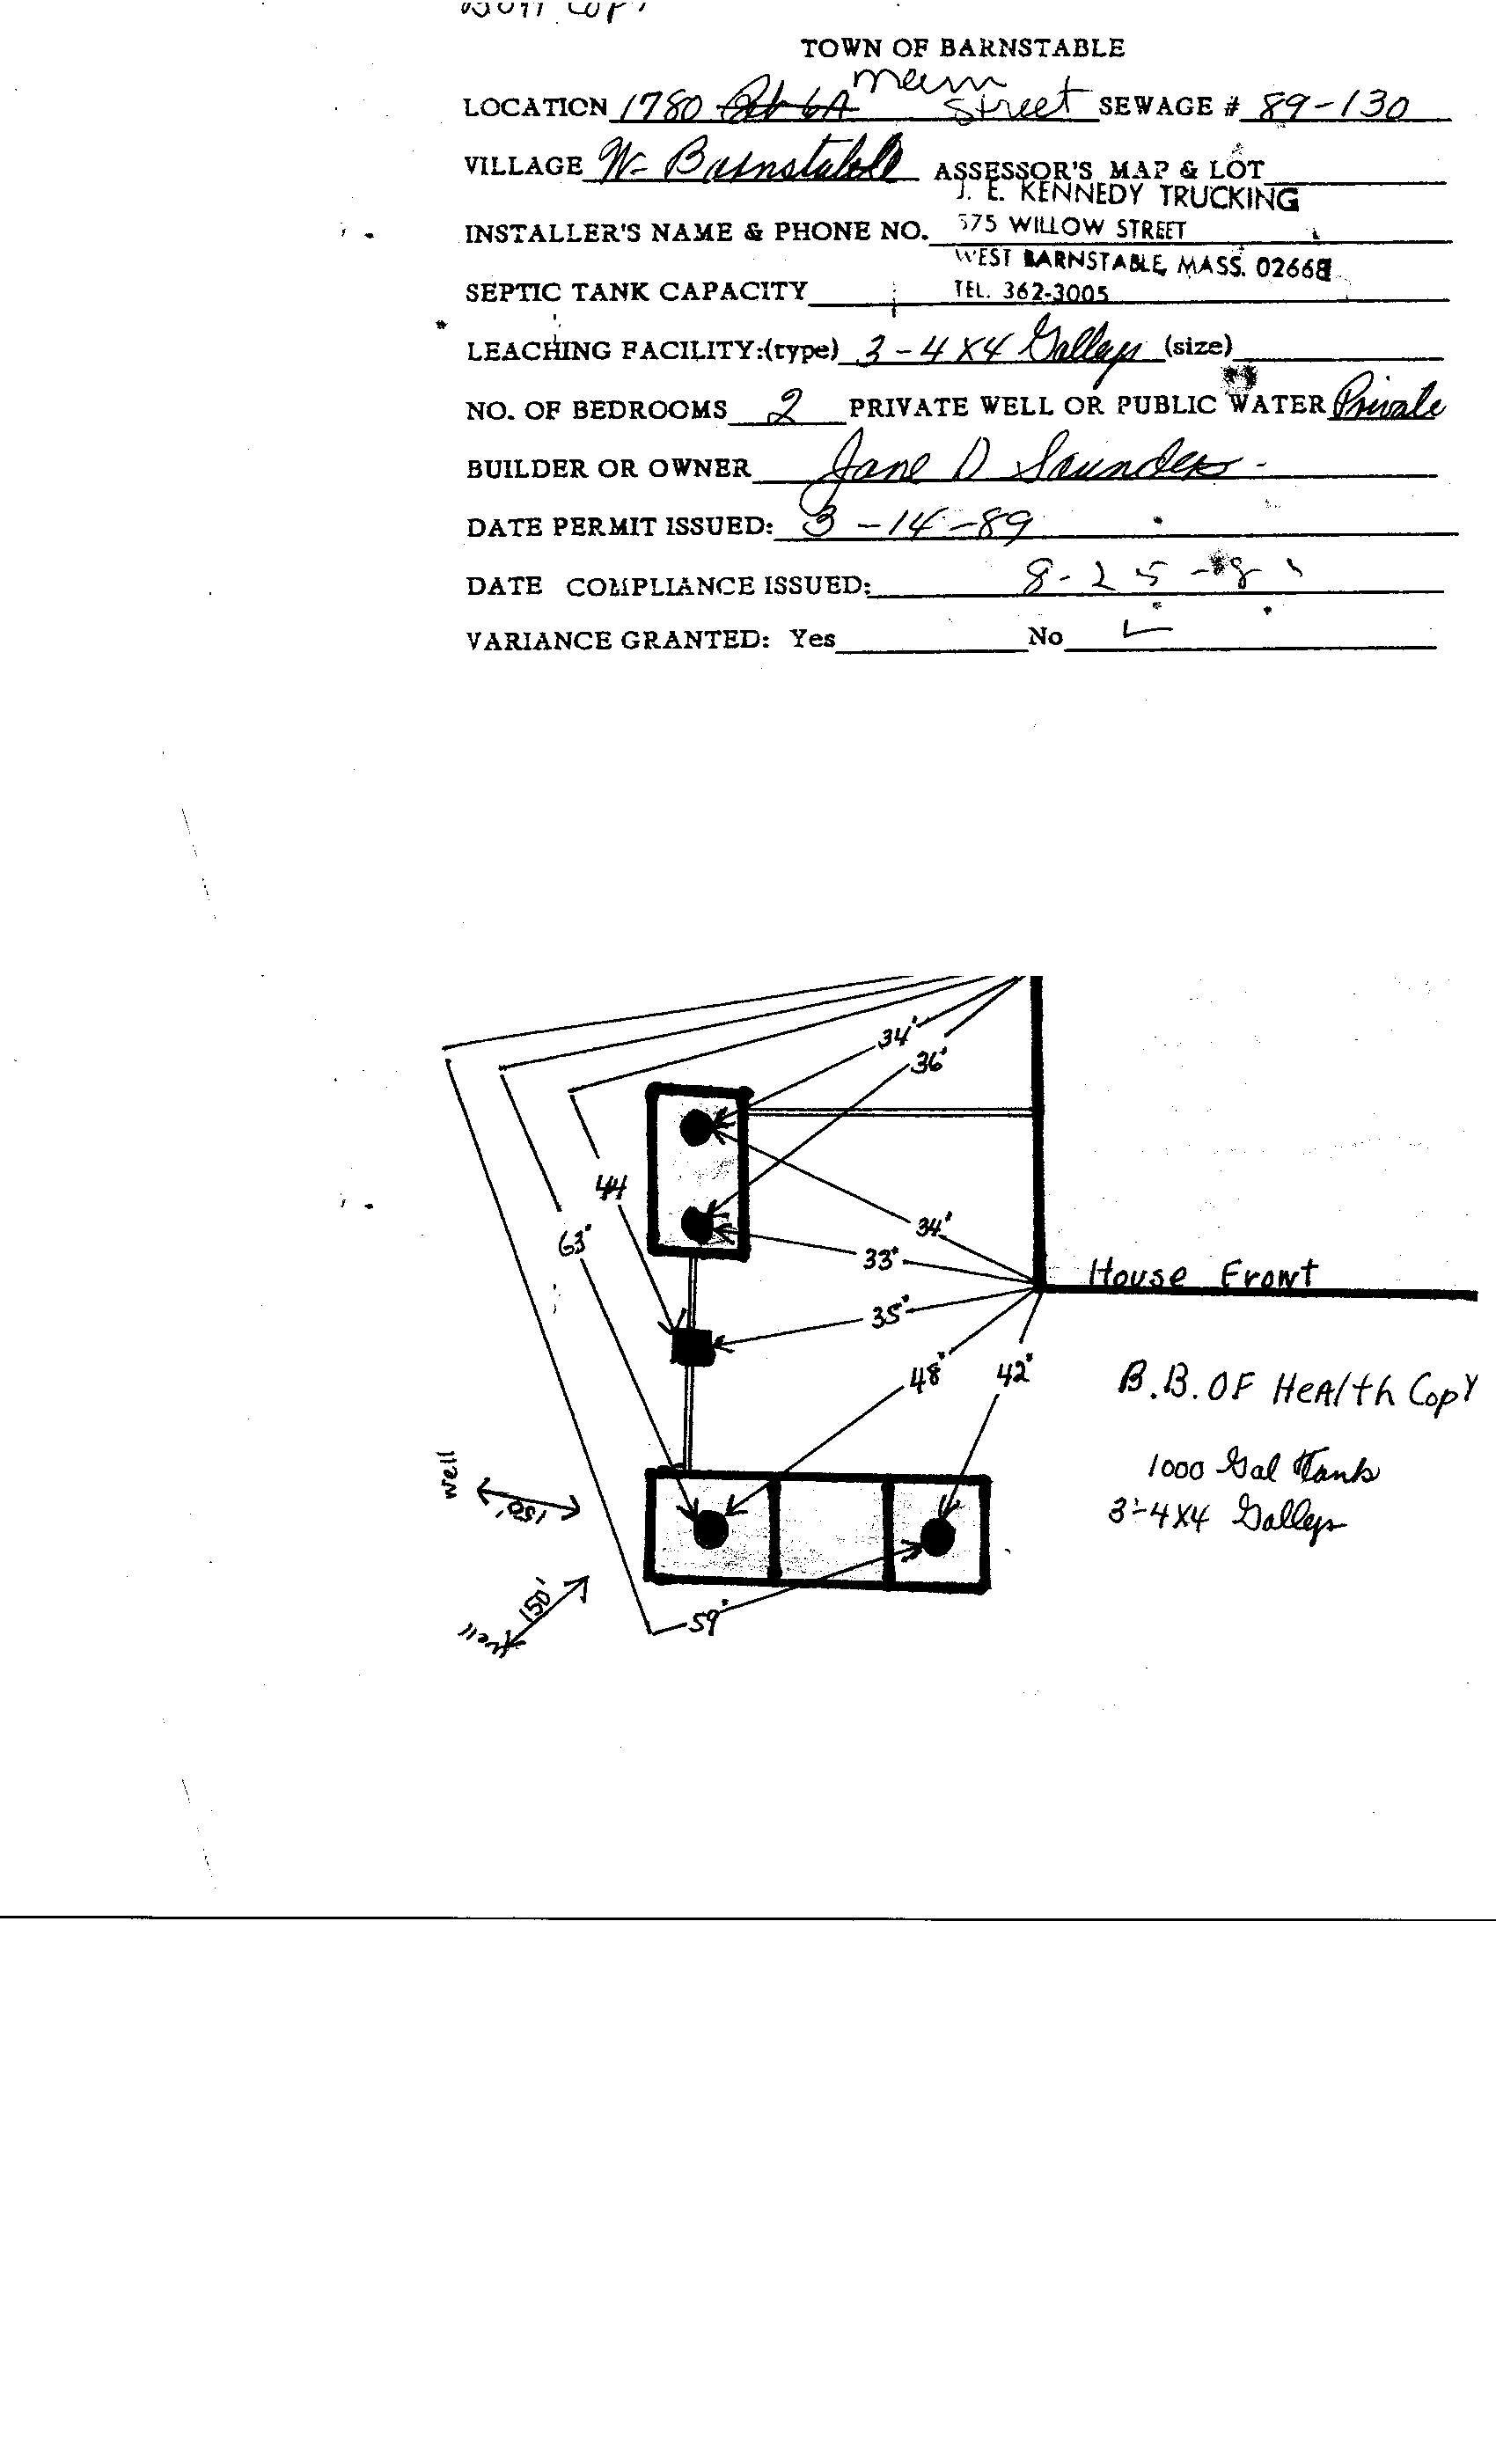 Copy
TOWN OF BARNSTABLE
LOCATION 1780 Rte 6A Main Street SEWAGE # 89-130
VILLAGE W. Barnstable ASSESSOR'S MAP & LOT
J. E. KENNEDY TRUCKING
INSTALLER'S NAME & PHONE NO. 575 WILLOW STREET
WEST BARNSTABLE, MASS. 02668
SEPTIC TANK CAPACITY TEL. 362-3005
LEACHING FACILITY:(type) 3-4X4 Galleys (size)
NO. OF BEDROOMS 2 PRIVATE WELL OR PUBLIC WATER Private
BUILDER OR OWNER Jane D Saunders
DATE PERMIT ISSUED: 3-14-89
DATE COMPLIANCE ISSUED: 8-25-8
VARIANCE GRANTED: Yes No
34'
36'
44
63'
34'
33'
House Front
35'
48'
42'
B.B. OF HeAlth Copy
well
150'
1000 Gal Tank
3-4X4 Galleys
150'
well
59'